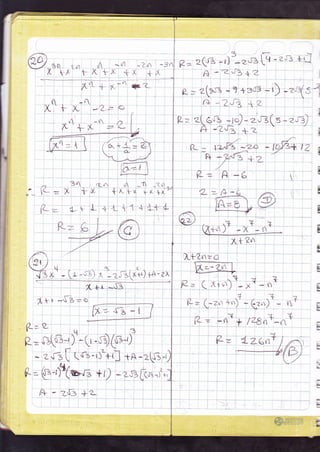 20
x^3n + x^2n + x^n + x^-n + x^-2n + x^-3n
x^n + x^-n - 2
x^n + x^-n - 2 = 0
x^n + x^-n = 2
x^n = 1
a + 1/a = 2
a=1
∴ R = x^3n + x^2n + x^n + x^-n + x^-2n + x^-3n
R = 1 + 1 + 1 + 1 + 1 + 1
R = 6 C
21
√3x^4 - (1-√3)x^3 - 2√3(x²+1)+A-2x
x+1-√3
x+1-√3=0
x = √3 - 1
R=2
R=√3(√3-1)^4 - (1-√3)(√3-1)^3
- 2√3[(√3-1)²+1] + A - 2(√3-1)
R=(√3-1)^4(√3+1) - 2√3[(√3-1)²+1]
A - 2√3 + 2
R = 2(√3-1)^3 - 2√3[4-2√3+1]
A - 2√3 + 2
R = 2(3√3 - 9 + 3√3 - 1) - 2√3(5-
A - 2√3 + 2
R = 2(6√3 - 10) - 2√3(5-2√3)
A - 2√3 + 2
R = 12√3 - 20 - 10√3 + 12
A - 2√3 + 2
R = A - 6
2 = A - 6
A=8 D
22
(x+n)^7 - x^7 - n^7
x+2n
x+2n=0
x=-2n
R = (x+n)^7 - x^7 - n^7
R = (-2n+n)^7 - (-2n)^7 - n^7
R = -n^7 + 128n^7 - n^7
R = 126n^7 B